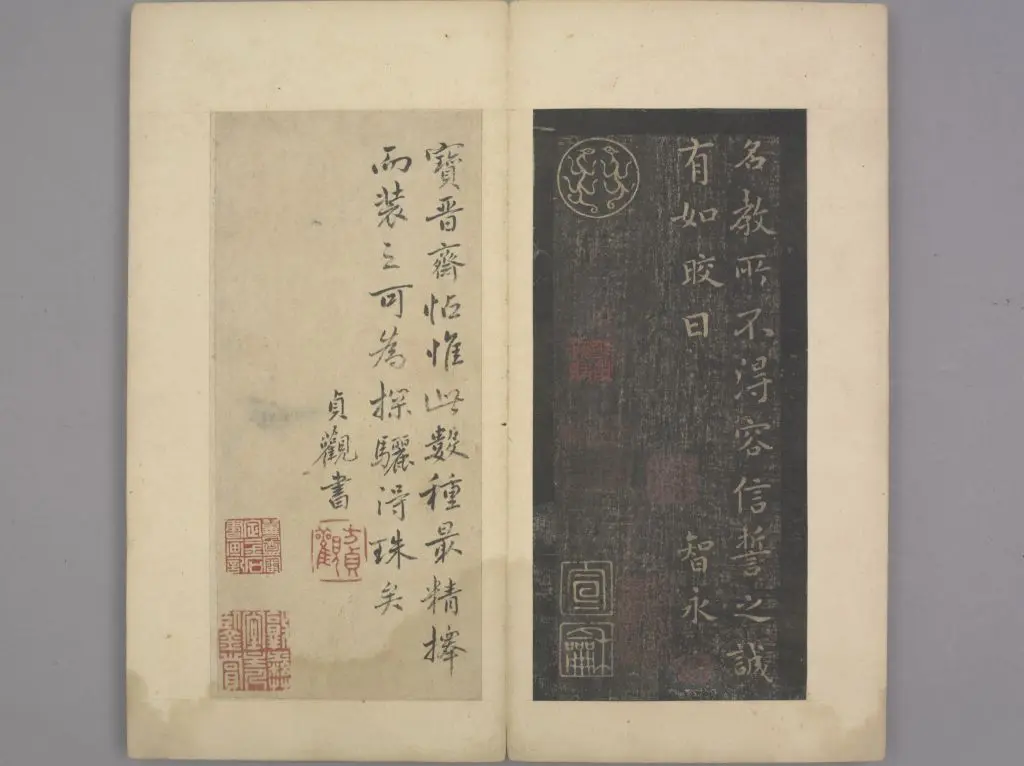 名教所不得容信誓之誠
有如晈日 智永
宣
龢
寶晋齋帖惟此數種最精擇
而装之可為探驪得珠矣
貞觀書
方貞觀